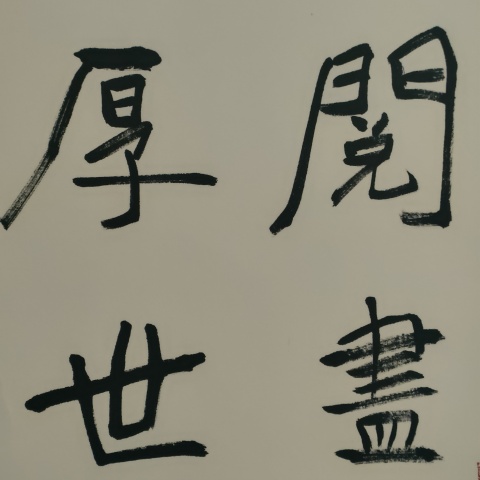 閱盡
厚世